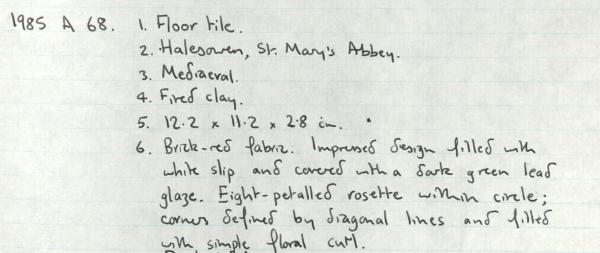 1985 A 68. 1. Floor tile.
2. Halesowen, St. Mary's Abbey.
3. Mediaeval.
4. Fired clay.
5. 12.2 x 11.2 x 2.8 cm.
6. Brick-red fabric. Impressed design filled with
white slip and covered with a dark green lead
glaze. Eight-petalled rosette within circle;
corners defined by diagonal lines and filled
with simple floral curl.